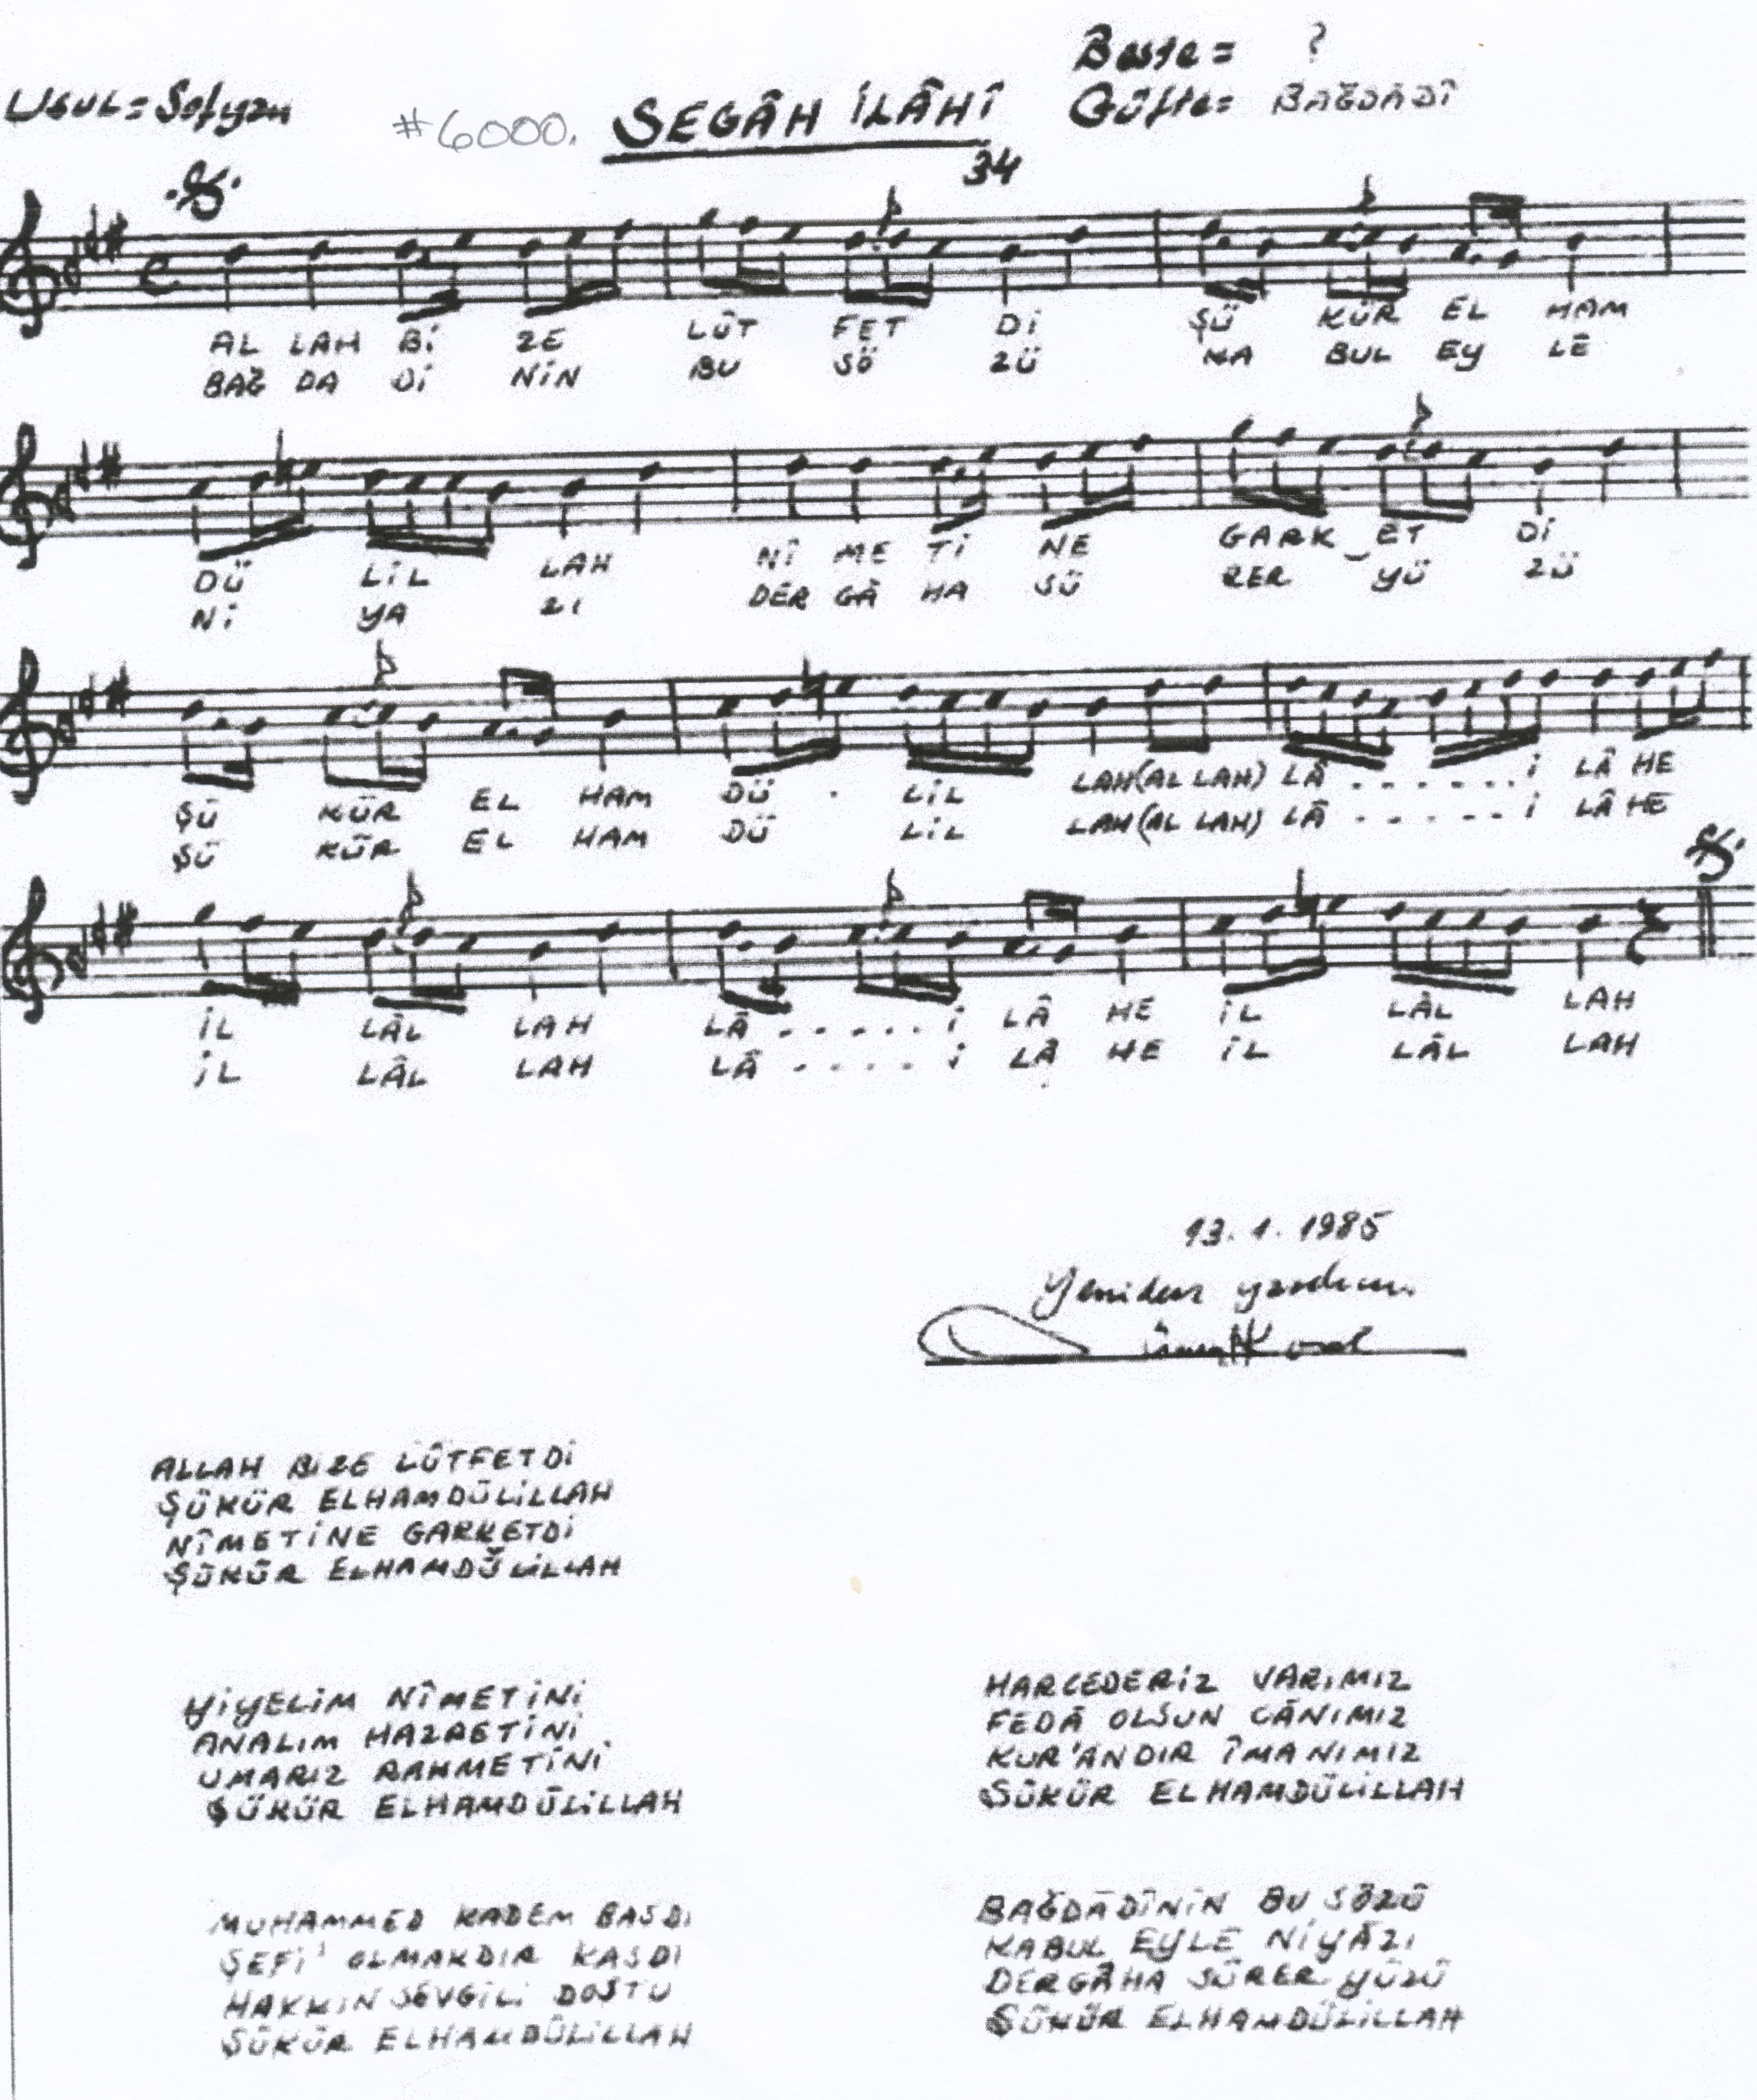 Beste = ?
Usul = Sofyan
#6000.
SEGÂH İLÂHÎ
Güfte = BAĞDADÎ
34
AL LAH Bİ ZE LÛT FET Dİ ŞÜ KÜR EL HAM
BAĞ DA Dİ NİN BU SÖ ZÜ KA BUL EY LE
DÜ LİL LAH NÎ ME Tİ NE GARK ET Dİ
Nİ YA ZI DER GÂ HA SÜ RER YÜ ZÜ
ŞÜ KÜR EL HAM DÜ . LİL LAH(AL LAH) LÂ . . . . . . İ LÂ HE
ŞÜ KÜR EL HAM DÜ LİL LAH(AL LAH) LÂ . . . . . İ LÂ HE
İL LÂL LAH LÂ . . . . . İ LÂ HE İL LÂL LAH
İL LÂL LAH LÂ . . . . İ LÂ HE İL LÂL LAH
13.1.1985
Yeniden yazdım.
ALLAH BİZE LÛTFETDİ
ŞÜKÜR ELHAMDÜLİLLAH
NÎMETİNE GARKETDİ
ŞÜKÜR ELHAMDÜLİLLAH
YİYELİM NÎMETİNİ
ANALIM HAZRETİNİ
UMARIZ RAHMETİNİ
ŞÜKÜR ELHAMDÜLİLLAH
MUHAMMED KADEM BASDI
ŞEFİ' OLMAKDIR KASDI
HAKKIN SEVGİLİ DOSTU
ŞÜKÜR ELHAMDÜLİLLAH
HARCEDERİZ VARIMIZ
FEDÂ OLSUN CÂNIMIZ
KUR'ANDIR ÎMANIMIZ
ŞÜKÜR ELHAMDÜLİLLAH
BAĞDÂDÎNİN BU SÖZÜ
KABUL EYLE NİYÂZI
DERGÂHA SÜRER YÜZÜ
ŞÜKÜR ELHAMDÜLİLLAH